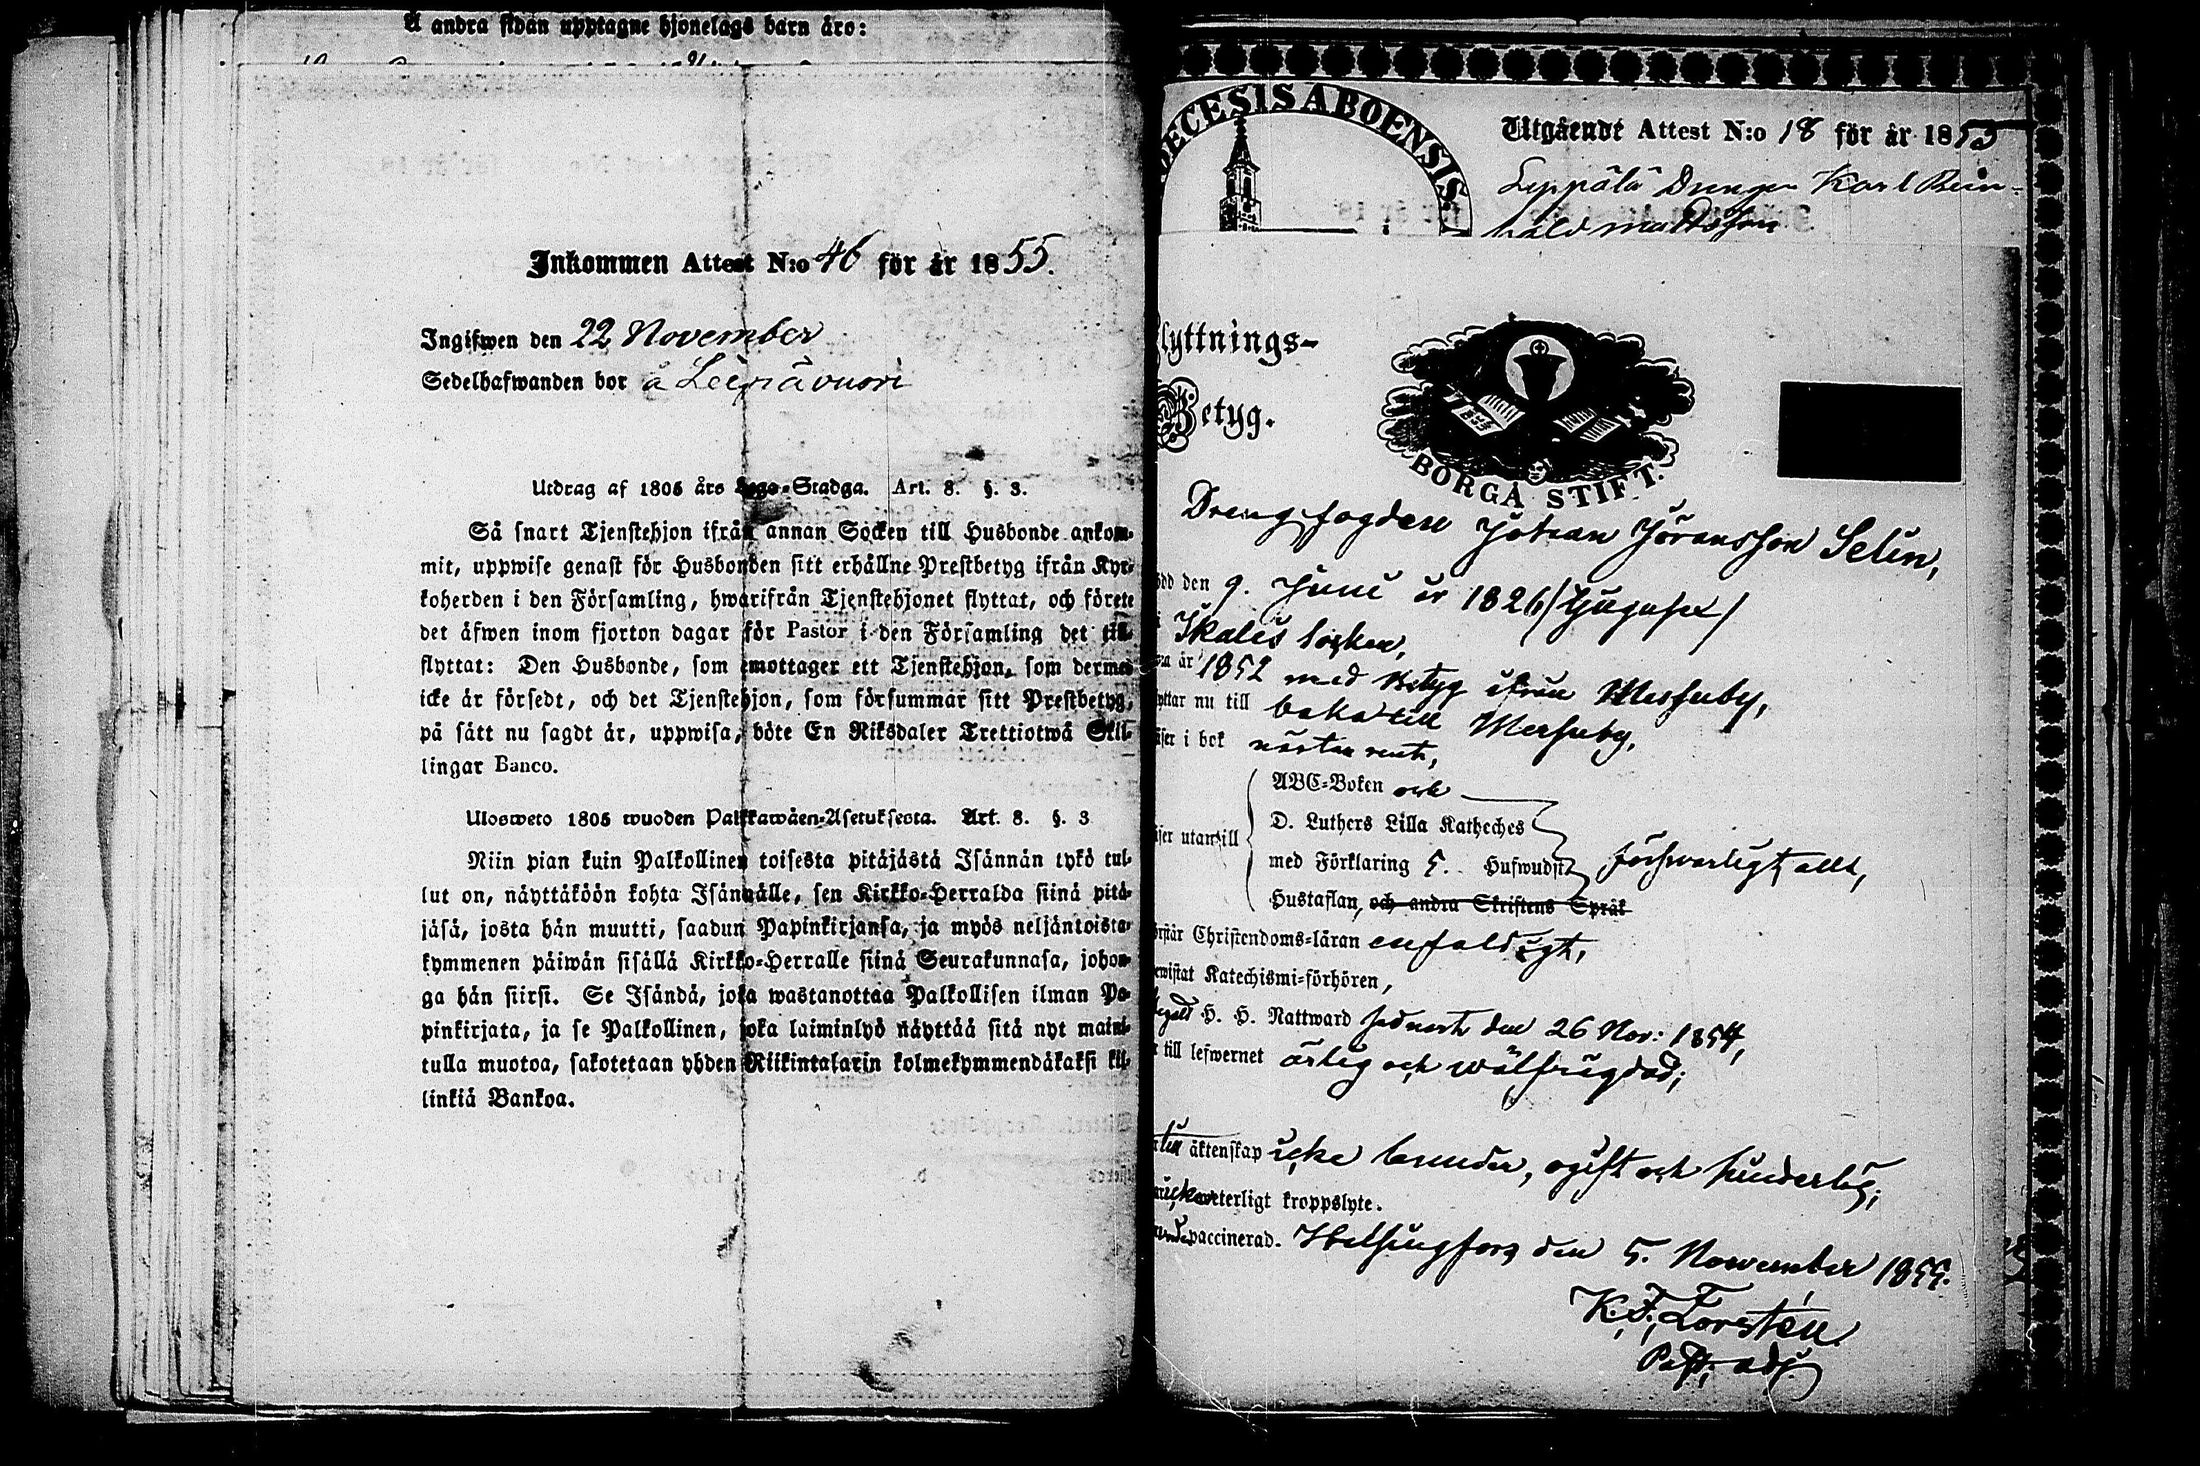 Å andra sidan upptagne hjonelags barn äro:
Inkommen Attest N:o 46 för år 1855.
Ingifwen den 22 November
Sedelhafwanden bor å Leepävuori
Utdrag af 1805 års Lego-Stadga. Art. 8. §. 3.
Så snart Tjenstehjon ifrån annan Socken till Husbonde ankom-
mit, uppwise genast för Husbonden sitt erhållne Prestbetyg ifrån Kyr-
koherden i den Församling, hwarifrån Tjenstehjonet flyttat, och förete
det äfwen inom fjorton dagar för Pastor i den Församling det till-
flyttat: Den Husbonde, som emottager ett Tjenstehjon, som dermed
icke är försedt, och det Tjenstehjon, som försummar sitt Prestbetyg,
på sätt nu sagdt är, uppwisa, böte En Riksdaler Trettiotwå Skil-
lingar Banco.
Ulosweto 1805 wuoden Palkkawäen-Asetuksesta. Art. 8. §. 3
Niin pian kuin Palkollinen toisesta pitäjästä Isännän tykö tul-
lut on, näyttäköön kohta Isännälle, sen Kirkko-Herralda siinä pitä-
jäsä, josta hän muutti, saadun Papinkirjansa, ja myös neljäntoista-
kymmenen päiwän sisällä Kirkko-Herralle siinä Seurakunnasa, johon-
ga hän siirsi. Se Isändä, joka wastanottaa Palkollisen ilman Pa-
pinkirjata, ja se Palkollinen, joka laiminlyö näyttää sitä nyt maini-
tulla muotoa, sakotetaan yhden Riikintalarin kolmekymmendäkaksi kil-
linkiä Bankoa.
DIECESIS ABOENSIS
Utgående Attest N:o 18 för år 1855
Leppälä Drengen Karl Rein-
hold Mattsson
Flyttnings-
Betyg.
BORGÅ STIFT.
Drengfogden Johan Jöransson Selin,
född den 9. Juni år 1826 /
i Ikalis Socken,
år 1852 med Betyg ifrån Messuby,
flyttar nu till baka till Messuby,
läser i bok nästan rent,
läser utantill
ABC-Boken och
D. Luthers Lilla Katheches
med Förklaring 5. Hufwudst
Hustaflan, och andra Skriftens Språk
försvarligt allt,
förstår Christendoms-läran enfaldigt,
bewistat Katechismi-förhören,
begått H. H. Nattward sednast den 26 Nov: 1854,
är till lefwernet ärlig och wälfrägdad;
till äktenskap icke bunden, ogift och hinderlös;
icke weterligt kroppslyte.
vaccinerad. Helsingfors den 5. November 1855.
K. F. Forstén
Past. adj.